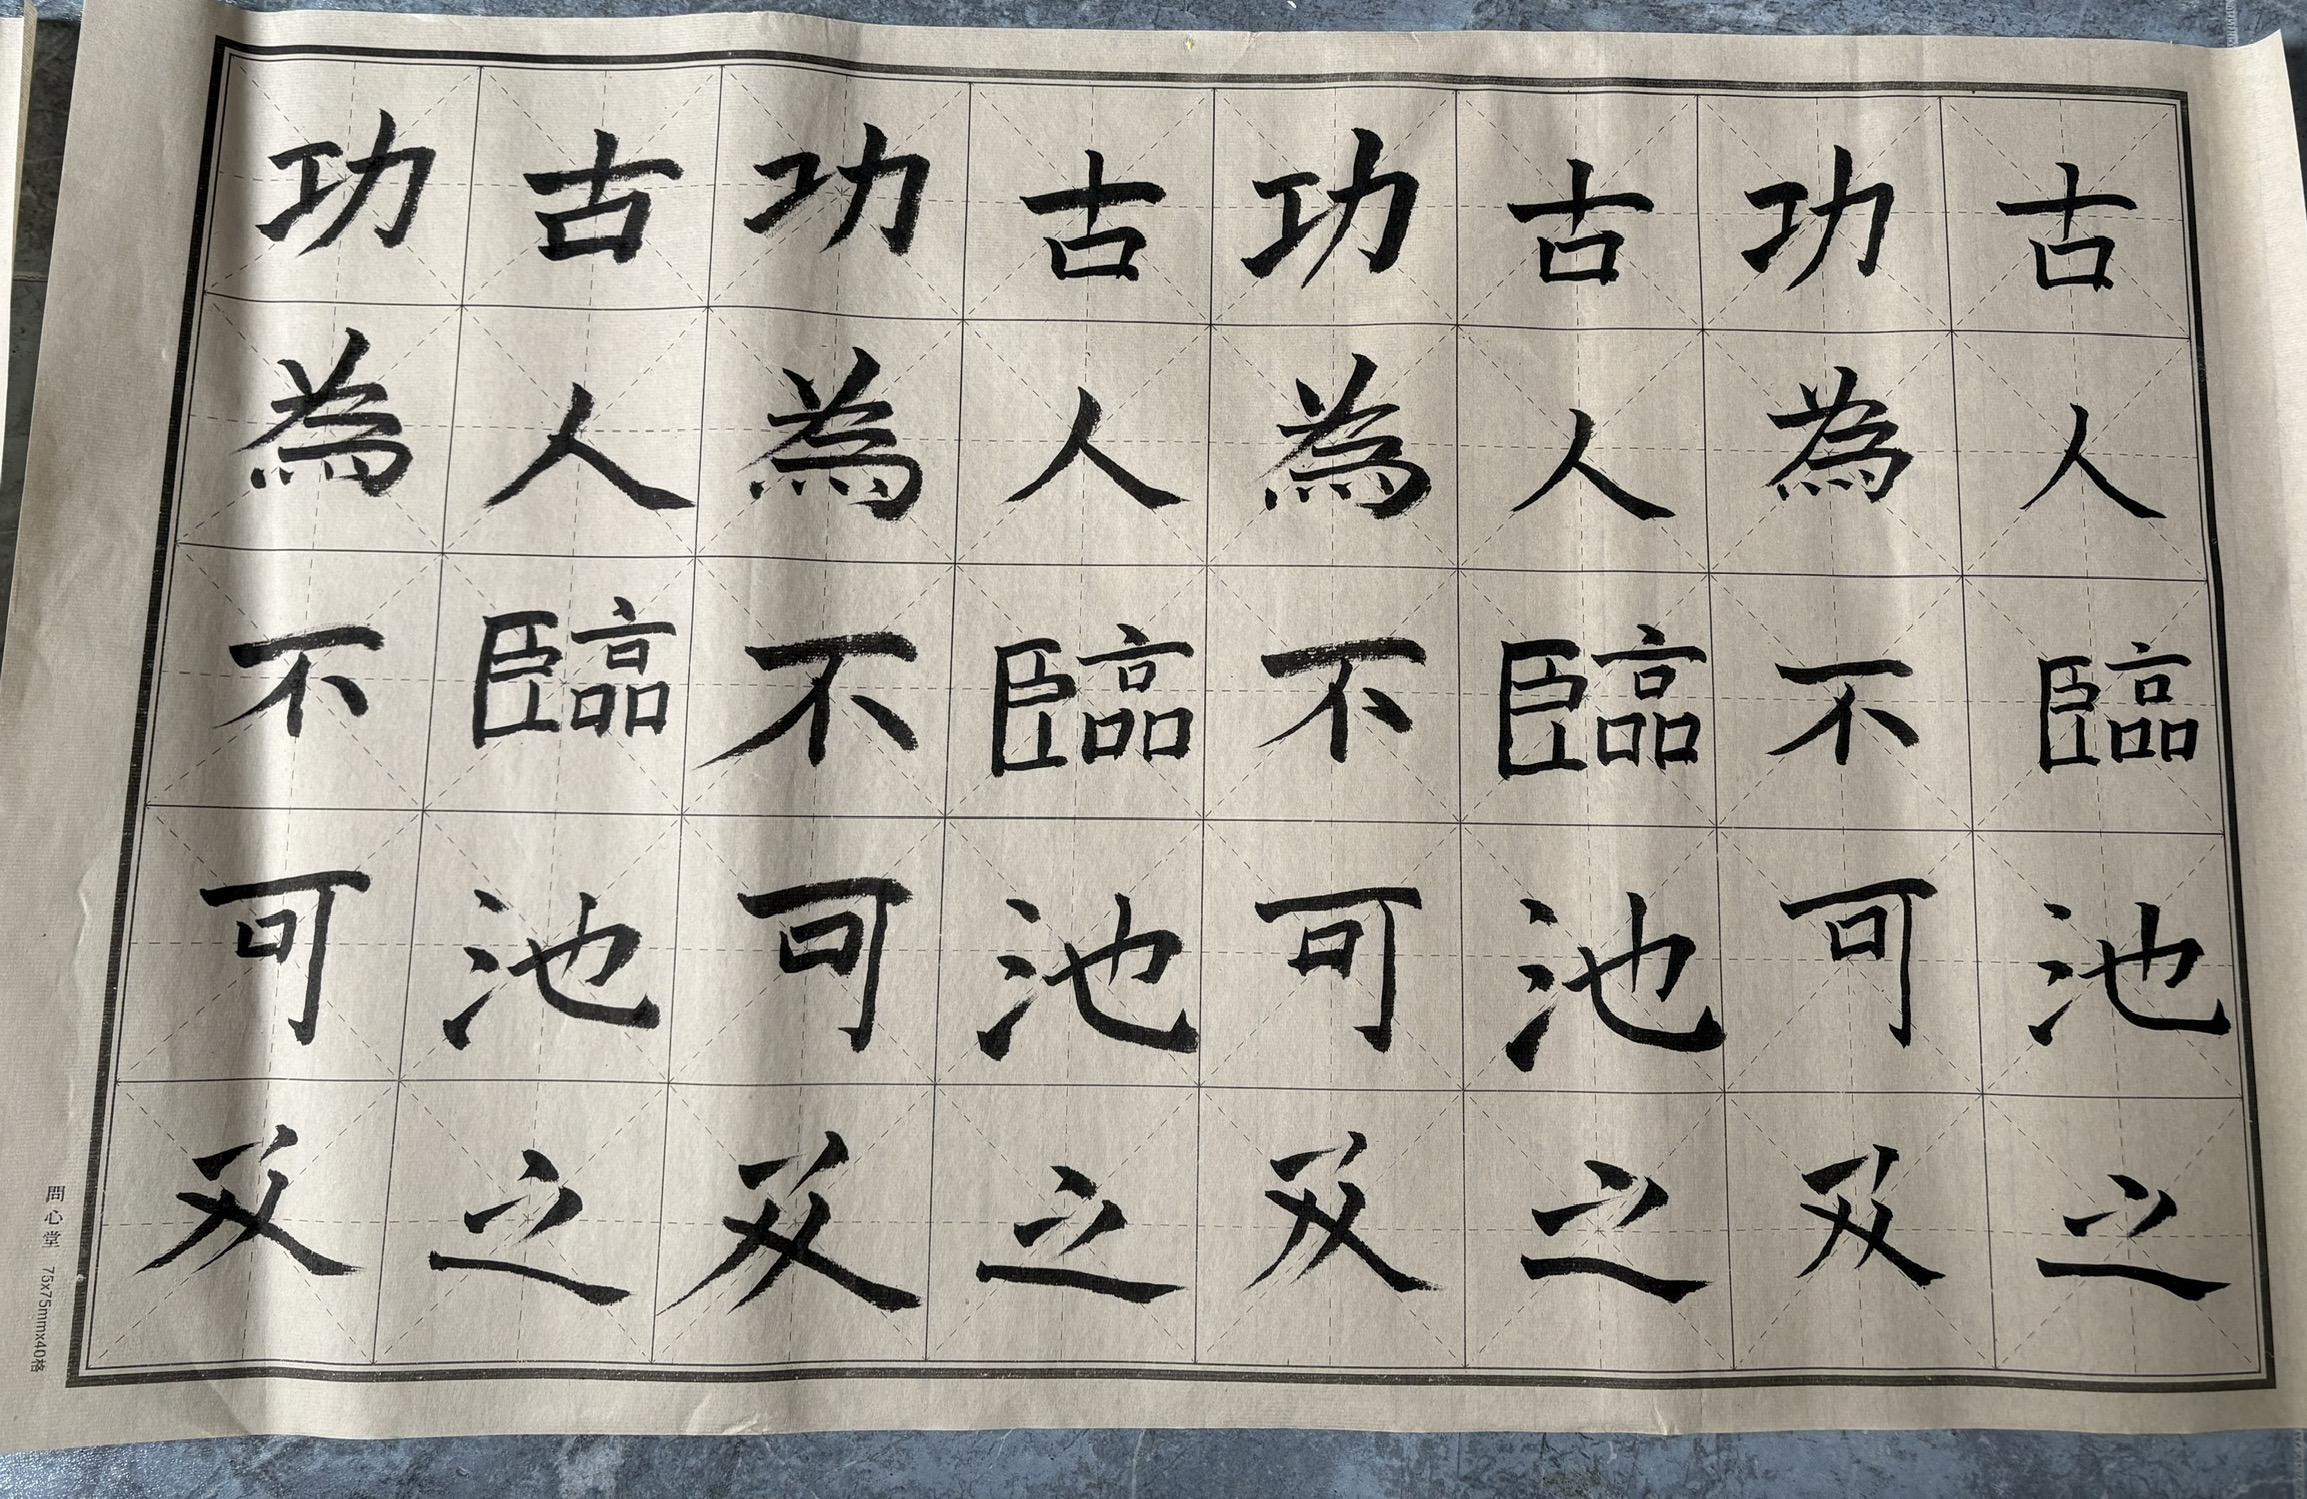 古人臨池之
功為不可及
古人臨池之
功為不可及
古人臨池之
功為不可及
古人臨池之
功為不可及
問心堂 75x75mmx40格